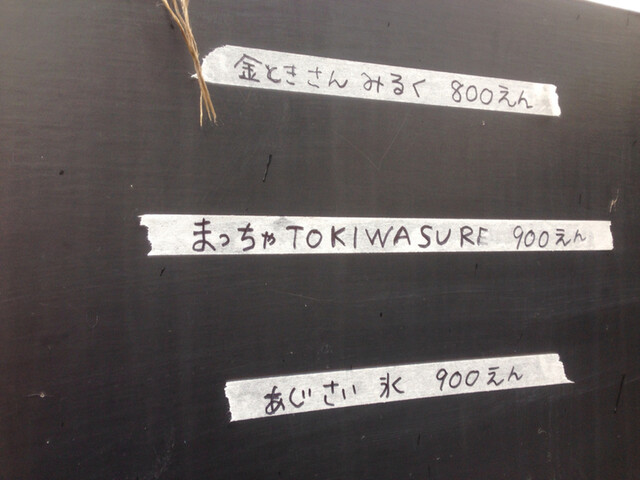 金ときさん みるく 800えん
まっちゃTOKIWASURE 900えん
あじさい 氷 900えん